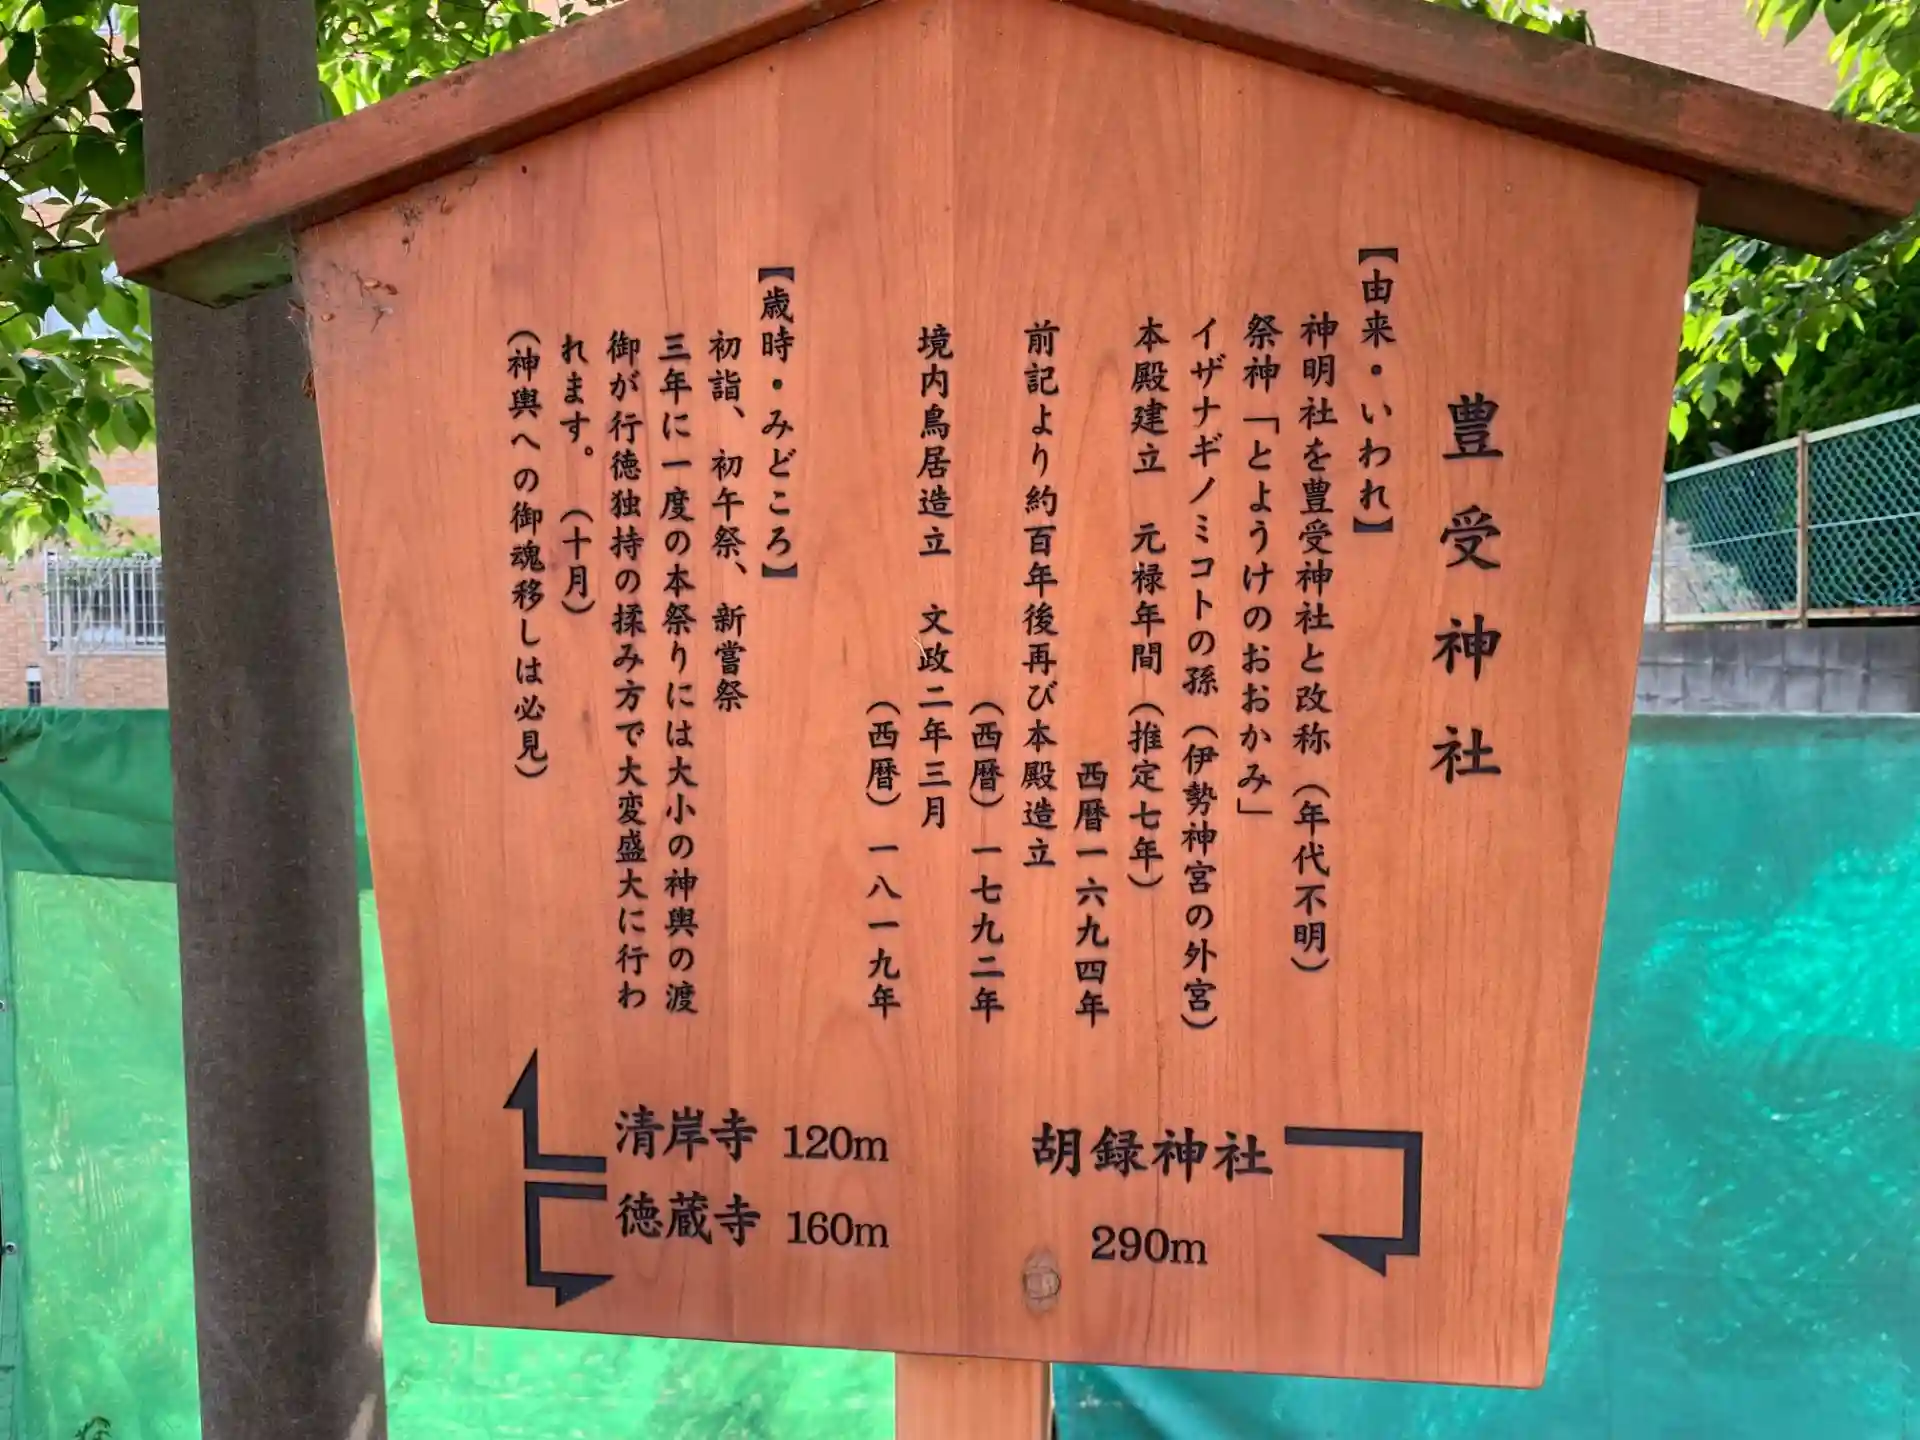 豊受神社
【由来・いわれ】
神明社を豊受神社と改称（年代不明）
祭神「とようけのおおかみ」
イザナギノミコトの孫（伊勢神宮の外宮）
本殿建立　元禄年間（推定七年）
西暦一六九四年
前記より約百年後再び本殿造立
（西暦）一七九二年
境内鳥居造立　文政二年三月
（西暦）一八一九年
【歳時・みどころ】
初詣、初午祭、新嘗祭
三年に一度の本祭りには大小の神輿の渡
御が行徳独持の揉み方で大変盛大に行わ
れます。（十月）
（神輿への御魂移しは必見）
胡録神社
290m
清岸寺 120m
徳蔵寺 160m